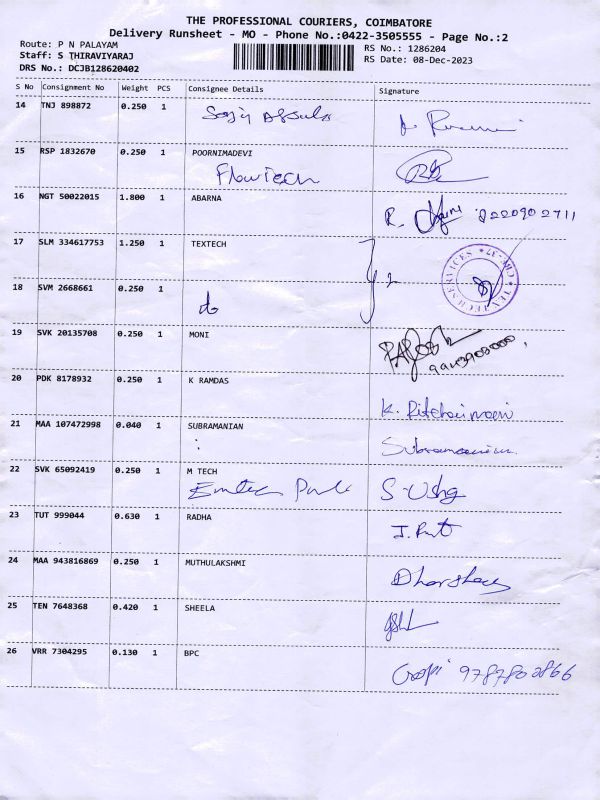 THE PROFESSIONAL COURIERS, COIMBATORE
Delivery Runsheet - MO - Phone No.:0422-3505555 - Page No.:2
Route: P N PALAYAM
Staff: S THIRAVIYARAJ
DRS No.: DCJB128620402
RS No.: 1286204
RS Date: 08-Dec-2023
S No Consignment No Weight PCS Consignee Details Signature
14 TNJ 898872 0.250 1
15 RSP 1832670 0.250 1 POORNIMADEVI
Flowtech
16 NGT 50022015 1.800 1 ABARNA
R. 8220902711
17 SLM 334617753 1.250 1 TEXTECH
2
18 SVM 2668661 0.250 1
do
19 SVK 20135708 0.250 1 MONI
20 PDK 8178932 0.250 1 K RAMDAS
K.
21 MAA 107472998 0.040 1 SUBRAMANIAN
Subramanian
22 SVK 65092419 0.250 1 M TECH
S-Usha
23 TUT 999044 0.630 1 RADHA
24 MAA 943816869 0.250 1 MUTHULAKSHMI
25 TEN 7648368 0.420 1 SHEELA
26 VRR 7304295 0.130 1 BPC
Gopi 9787802866